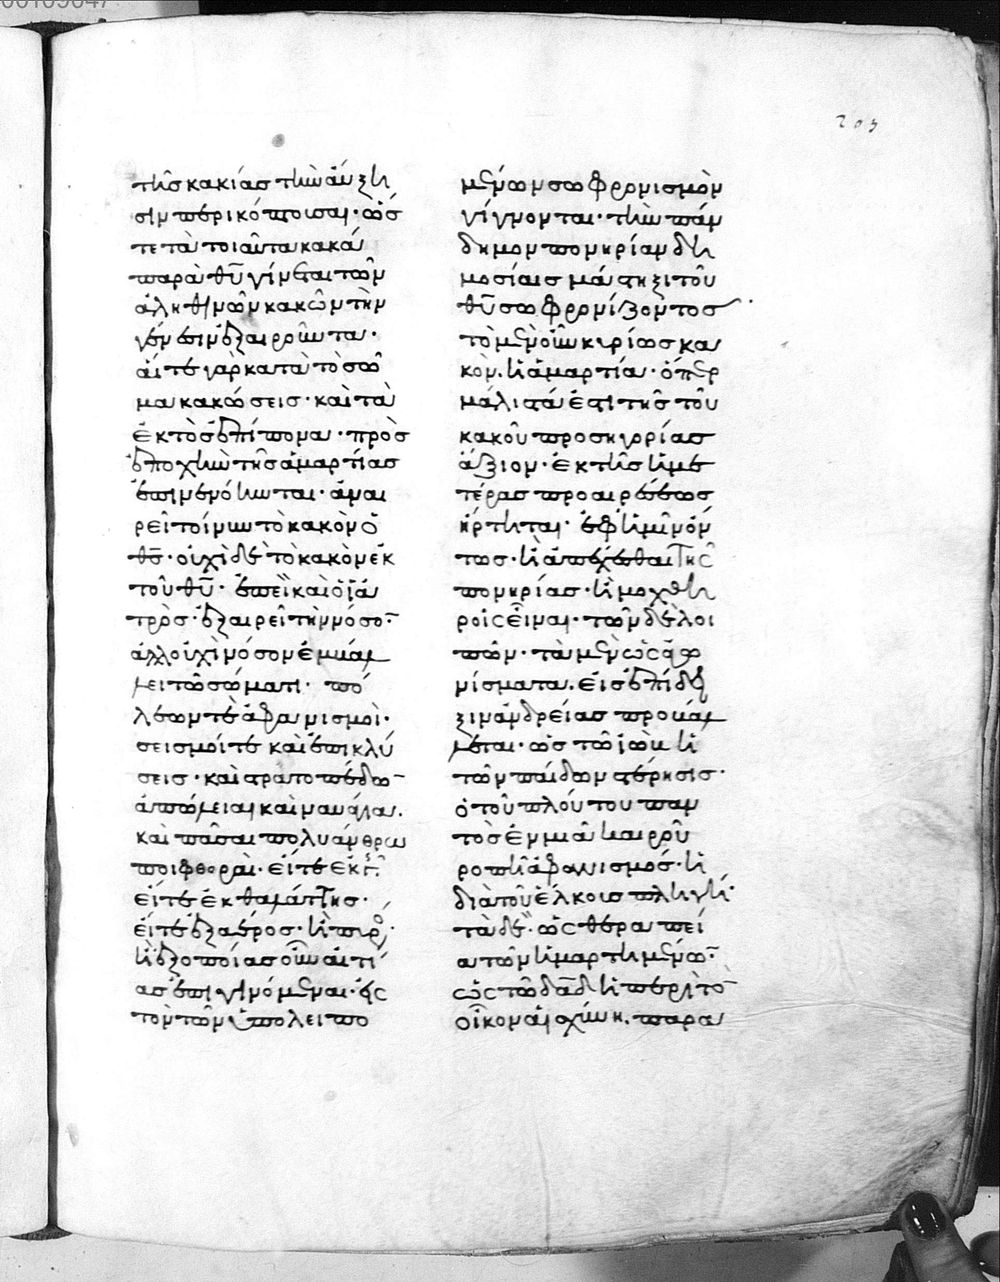 203
τῆς κακίας τὴν αὔξη
σιν περικόπτουσαι· ὥσ
τε τὰ τοιαῦτα κακὰ
παρὰ θῦ γίνεται τῶν
ἀληθινῶν κακῶν τὴν
γένεσιν ἐξαιροῦντα·
αἵ τε γὰρ κατὰ τὸ σῶ
μα κακώσεις· καὶ τὰ
ἐκτὸς ἐπίπονα· πρὸς
ἐποχὴν τῆς ἁμαρτίας
ἐπινενόηνται· ἀναι
ρεῖ τοίνυν τὸ κακὸν ὁ
θς· οὐχὶ δὲ τὸ κακὸν ἐκ
τοῦ θῦ· ἐπεὶ καὶ ὁ ἰα
τρὸς· ἐξαιρεῖ τὴν νόσον·
ἀλλ οὐχὶ νόσον
τῶ σώματι· πό
λεων τὲ ἀφανισμοὶ·
σεισμοί τε καὶ ἐπικλύ
σεις· καὶ στρατοπέδων
ἀπώλειαι καὶ ναυάγια·
καὶ πᾶσαι πολυάνθρω
ποι φθοραὶ· εἴτε ἐκ γῆς
εἴτε ἐκ θαλάττης·
εἴτε ἐξ ἀέρος· ἢ πυρὸς·
ἢ ἐξ ὁποίας οὖν αἰτί
ας ἐπιγινόμεναι· εἰς
τὸν τῶν ὑπολειπο
μένων σωφρονισμὸν
γίγνονται· τὴν πάν
δημον πονηρίαν δη
μοσίαις μάστιξι τοῦ
θῦ σωφρονίζοντος·
τὸ μὲν οὖν κυρίως κα
κὸν· ἡ ἁμαρτία· ὅπερ
μάλιστα ἐστὶ τῆς τοῦ
κακοῦ προσηγορίας
ἄξιον· ἐκ τῆς ἡμε
τέρας προαιρέσεως
ἤρτηται· ἐφ ἡμῖν ὄν
τος· ἢ ἀπέχεσθαι τῆς
πονηρίας· ἢ μοχθη
ροῖς εἶναι· τῶν δὲ λοι
πῶν· τὰ μὲν ὡς ἀγω
νίσματα· εἰς ἐπίδει
ξιν ἀνδρείας
ὡς τῶ ἰὼβ ἡ
τῶν παίδων στέρησις·
ὁ τοῦ πλούτου παν
τὸς ἐν μιᾶ καιροῦ
ροπῆ ἀφανισμός· ἡ
διὰ τοῦ ἕλκους πληγή·
τὰ δὲ· ὡς θεραπεί
α τῶν ἡμαρτημένων·
ὡς τῶ δαδ ἡ περὶ τὸν
οἶκον αἰσχύνη· παρα